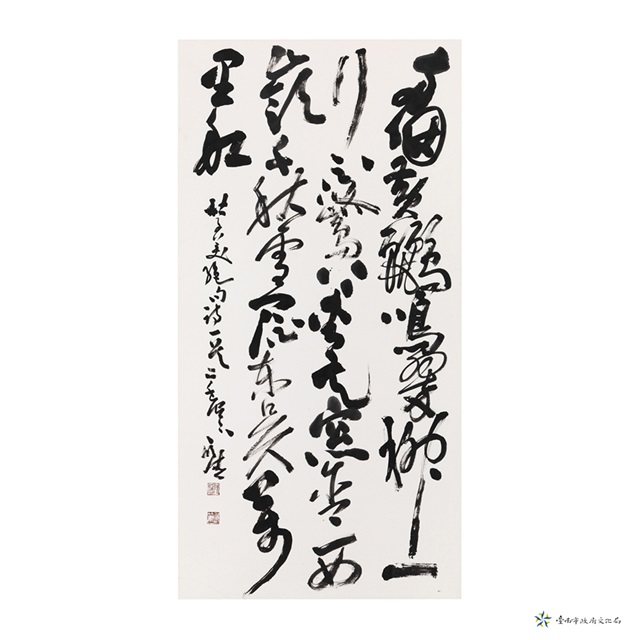 兩個黃鸝鳴翠柳一
行白鷺上青天窗含西
嶺千秋雪門泊東吳萬
里船
杜子美絕句詩一首
臺南市政府文化局